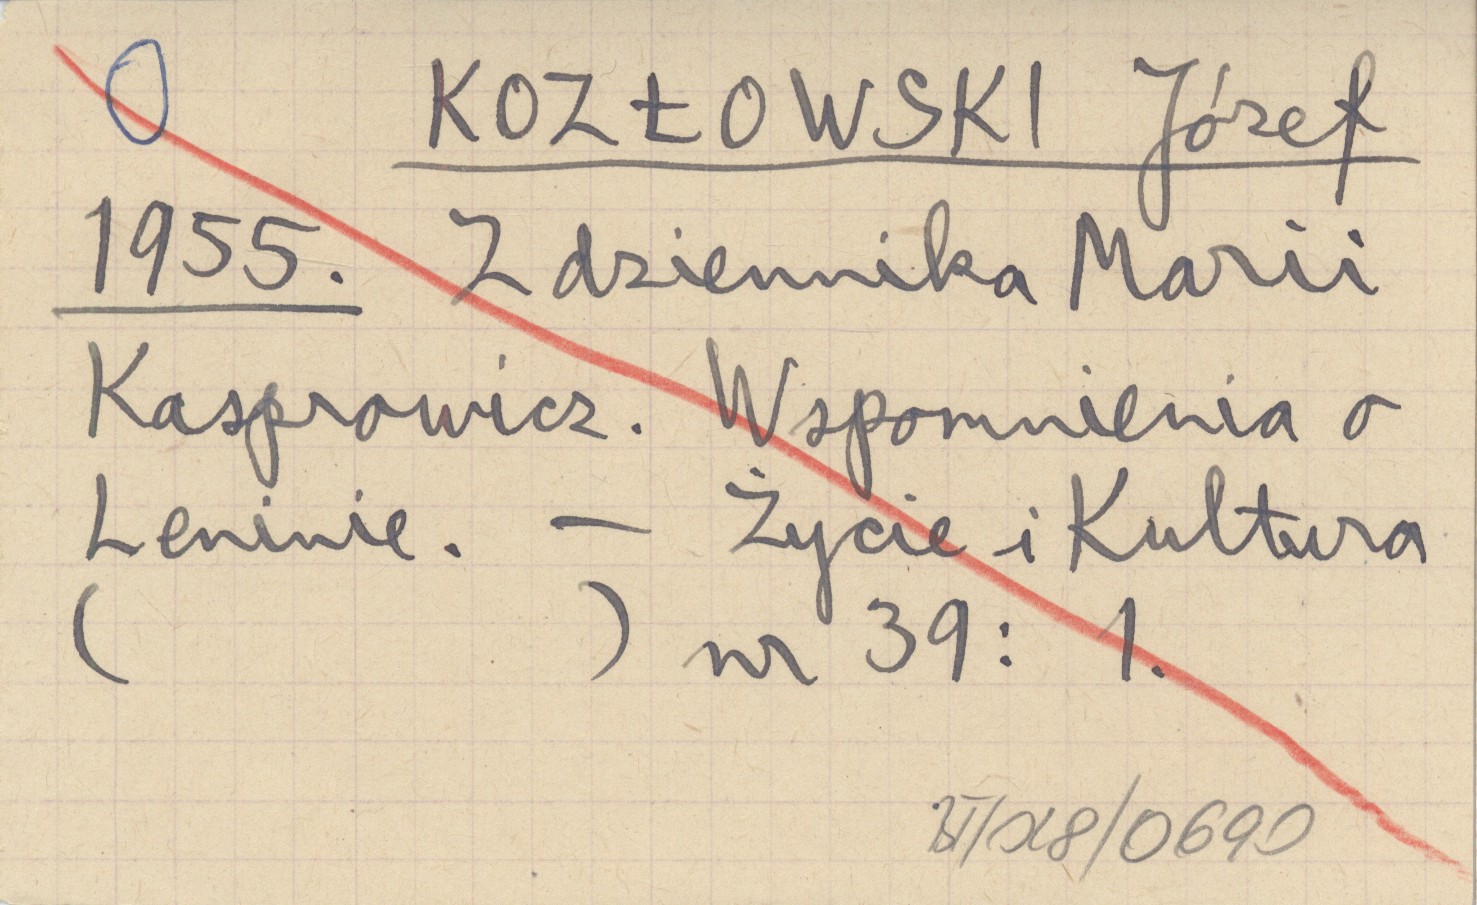 KOZŁOWSKI Józef
1955. Z dziennika Marii
Kasprowicz. Wspomnienia o
Leninie. — Życie i Kultura
( ) nr 39: 1.
0690